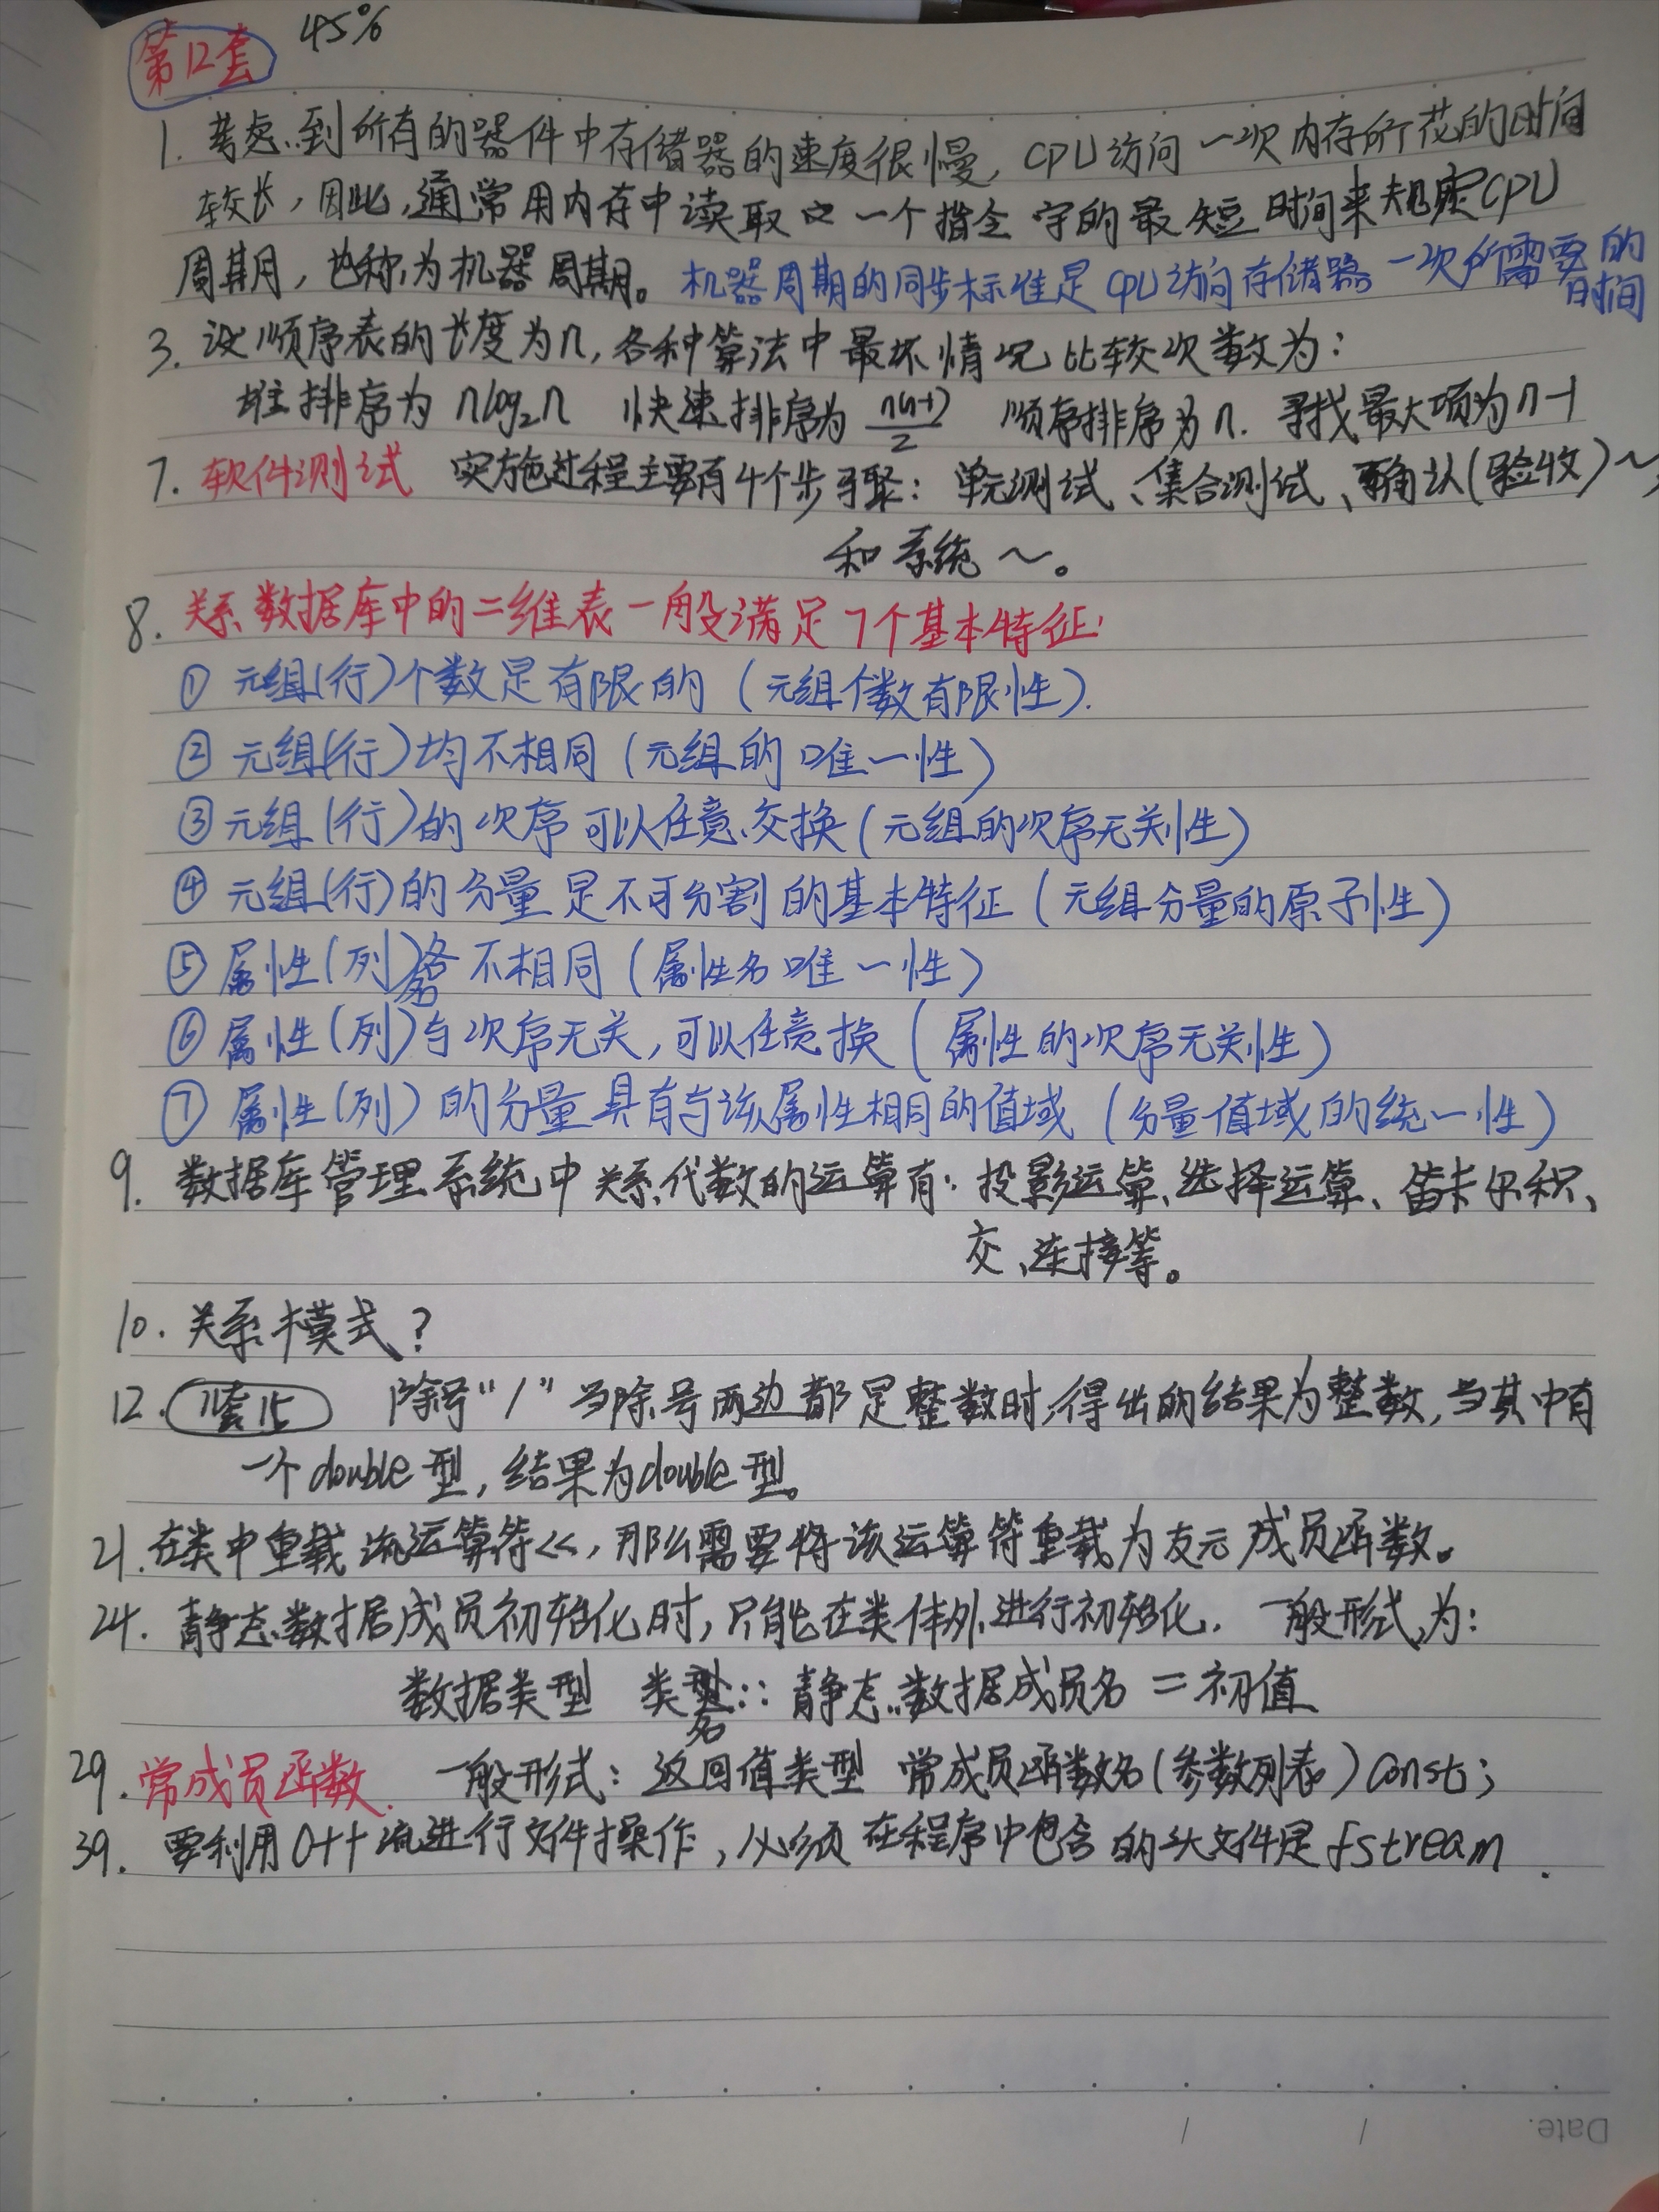 第12套 45%
1. 考虑到所有的器件中存储器的速度很慢, CPU访问一次内存所花的时间
较长, 因此, 通常用内存中读取一个指令字的最短时间来规定CPU
周期, 也称为机器周期。机器周期的同步标准是CPU访问存储器一次所需要的
时间
3. 设顺序表的长度为n, 各种算法中最坏情况比较次数为:
堆排序为 nlog₂n 快速排序为 n(n-1)/2 顺序排序为n. 寻找最大项为n-1
7. 软件测试 实施过程主要有4个步骤: 单元测试、集合测试、确认(验收)~、
和系统~。
8. 关系数据库中的二维表一般满足7个基本特征:
① 元组(行)个数是有限的 (元组个数有限性).
② 元组(行)均不相同 (元组的唯一性)
③ 元组(行)的次序可以任意交换 (元组的次序无关性)
④ 元组(行)的分量是不可分割的基本特征 (元组分量的原子性)
⑤ 属性(列)名各不相同 (属性名唯一性)
⑥ 属性(列)与次序无关, 可以任意换 (属性的次序无关性)
⑦ 属性(列)的分量具有与该属性相同的值域 (分量值域的统一性)
9. 数据库管理系统中关系代数的运算有: 投影运算、选择运算、笛卡尔积、
交、连接等。
10. 关系模式?
12. 11套15 除号"/"当除号两边都是整数时, 得出的结果为整数, 当其中有
一个double型, 结果为double型。
21. 在类中重载流运算符<<, 那么需要将该运算符重载为友元成员函数。
24. 静态数据成员初始化时, 只能在类体外进行初始化. 一般形式为:
数据类型 类名::静态数据成员名 = 初值
29. 常成员函数. 一般形式: 返回值类型 常成员函数名(参数列表) const;
39. 要利用C++流进行文件操作, 必须在程序中包含的头文件是fstream.
Date. / /